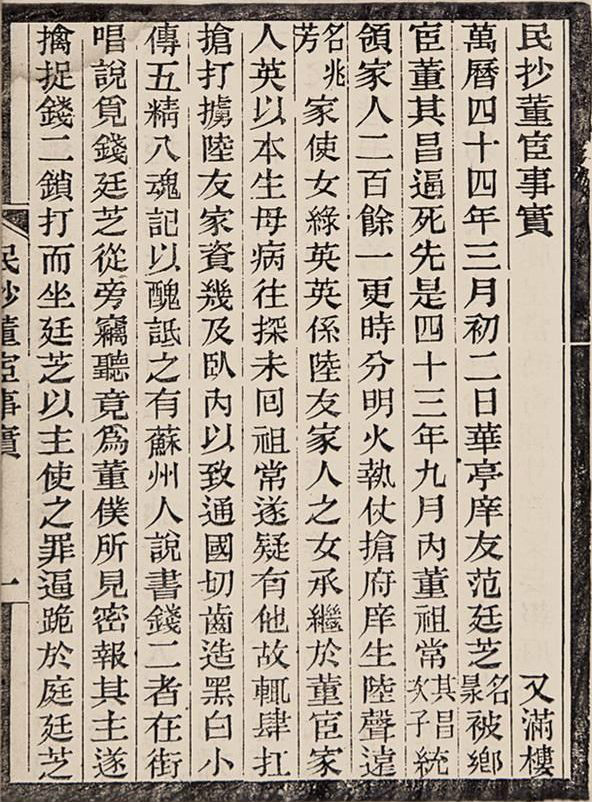 民抄董宦事實 又滿樓
萬曆四十四年三月初二日華亭庠友范廷芝名被鄉
宦董其昌逼死先是四十三年九月內董祖常其昌次子統
領家人二百餘一更時分明火執仗搶府庠生陸聲遠
名兆芳家使女綠英英係陸友家人之女承繼於董宦家
人英以本生母病往探未囘祖常遂疑有他故輒肆扛
搶打擄陸友家資幾及臥內以致通國切齒造黑白小
傳五精八魂記以醜詆之有蘇州人說書錢二者在街
唱說覓錢廷芝從旁竊聽竟爲董僕所見密報其主遂
擒捉錢二鎖打而坐廷芝以主使之罪逼跪於庭廷芝
民抄董宦事實 一